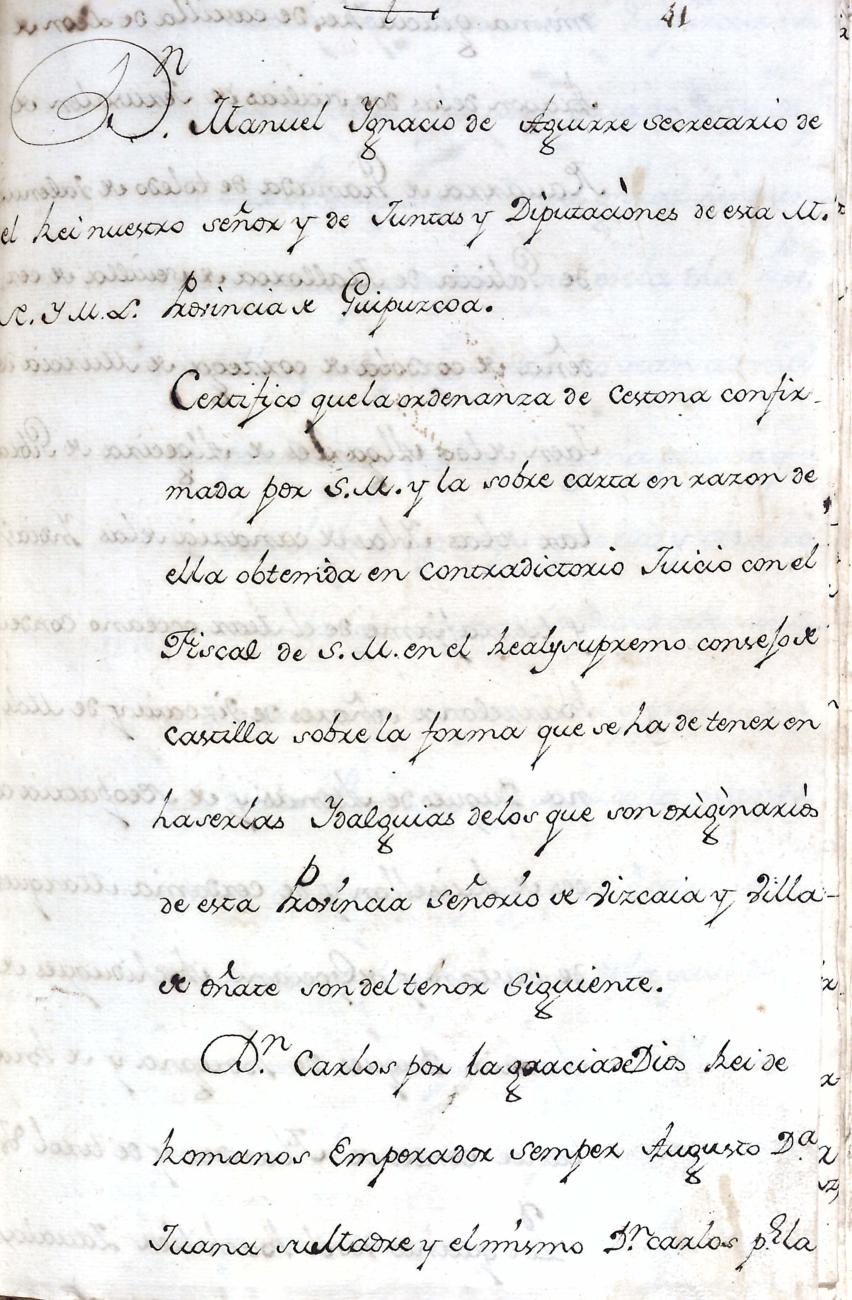 41
Dn. Manuel Ygnacio de Aguirre secretario de
el Rei nuestro señor y de Juntas y Diputaciones de esta M.
N. Y M. L. Provincia de Guipuzcoa.
Certifico que la ordenanza de Cestona confir-
mada por S. M. y la sobre carta en razon de
ella obtenida en Contradictorio Juicio con el
Fiscal de S. M. en el Real y supremo consejo de
Castilla sobre la forma que se ha de tener en
haser las Ydalguias de los que son originarios
de esta Provincia señorio de Vizcaia y Villa
de oñate son del tenor Siguiente.
Dn. Carlos por la gracia de Dios Rei de
Romanos Emperador semper Augusto Da.
Juana su Madre y el mismo Dn. carlos pr. la